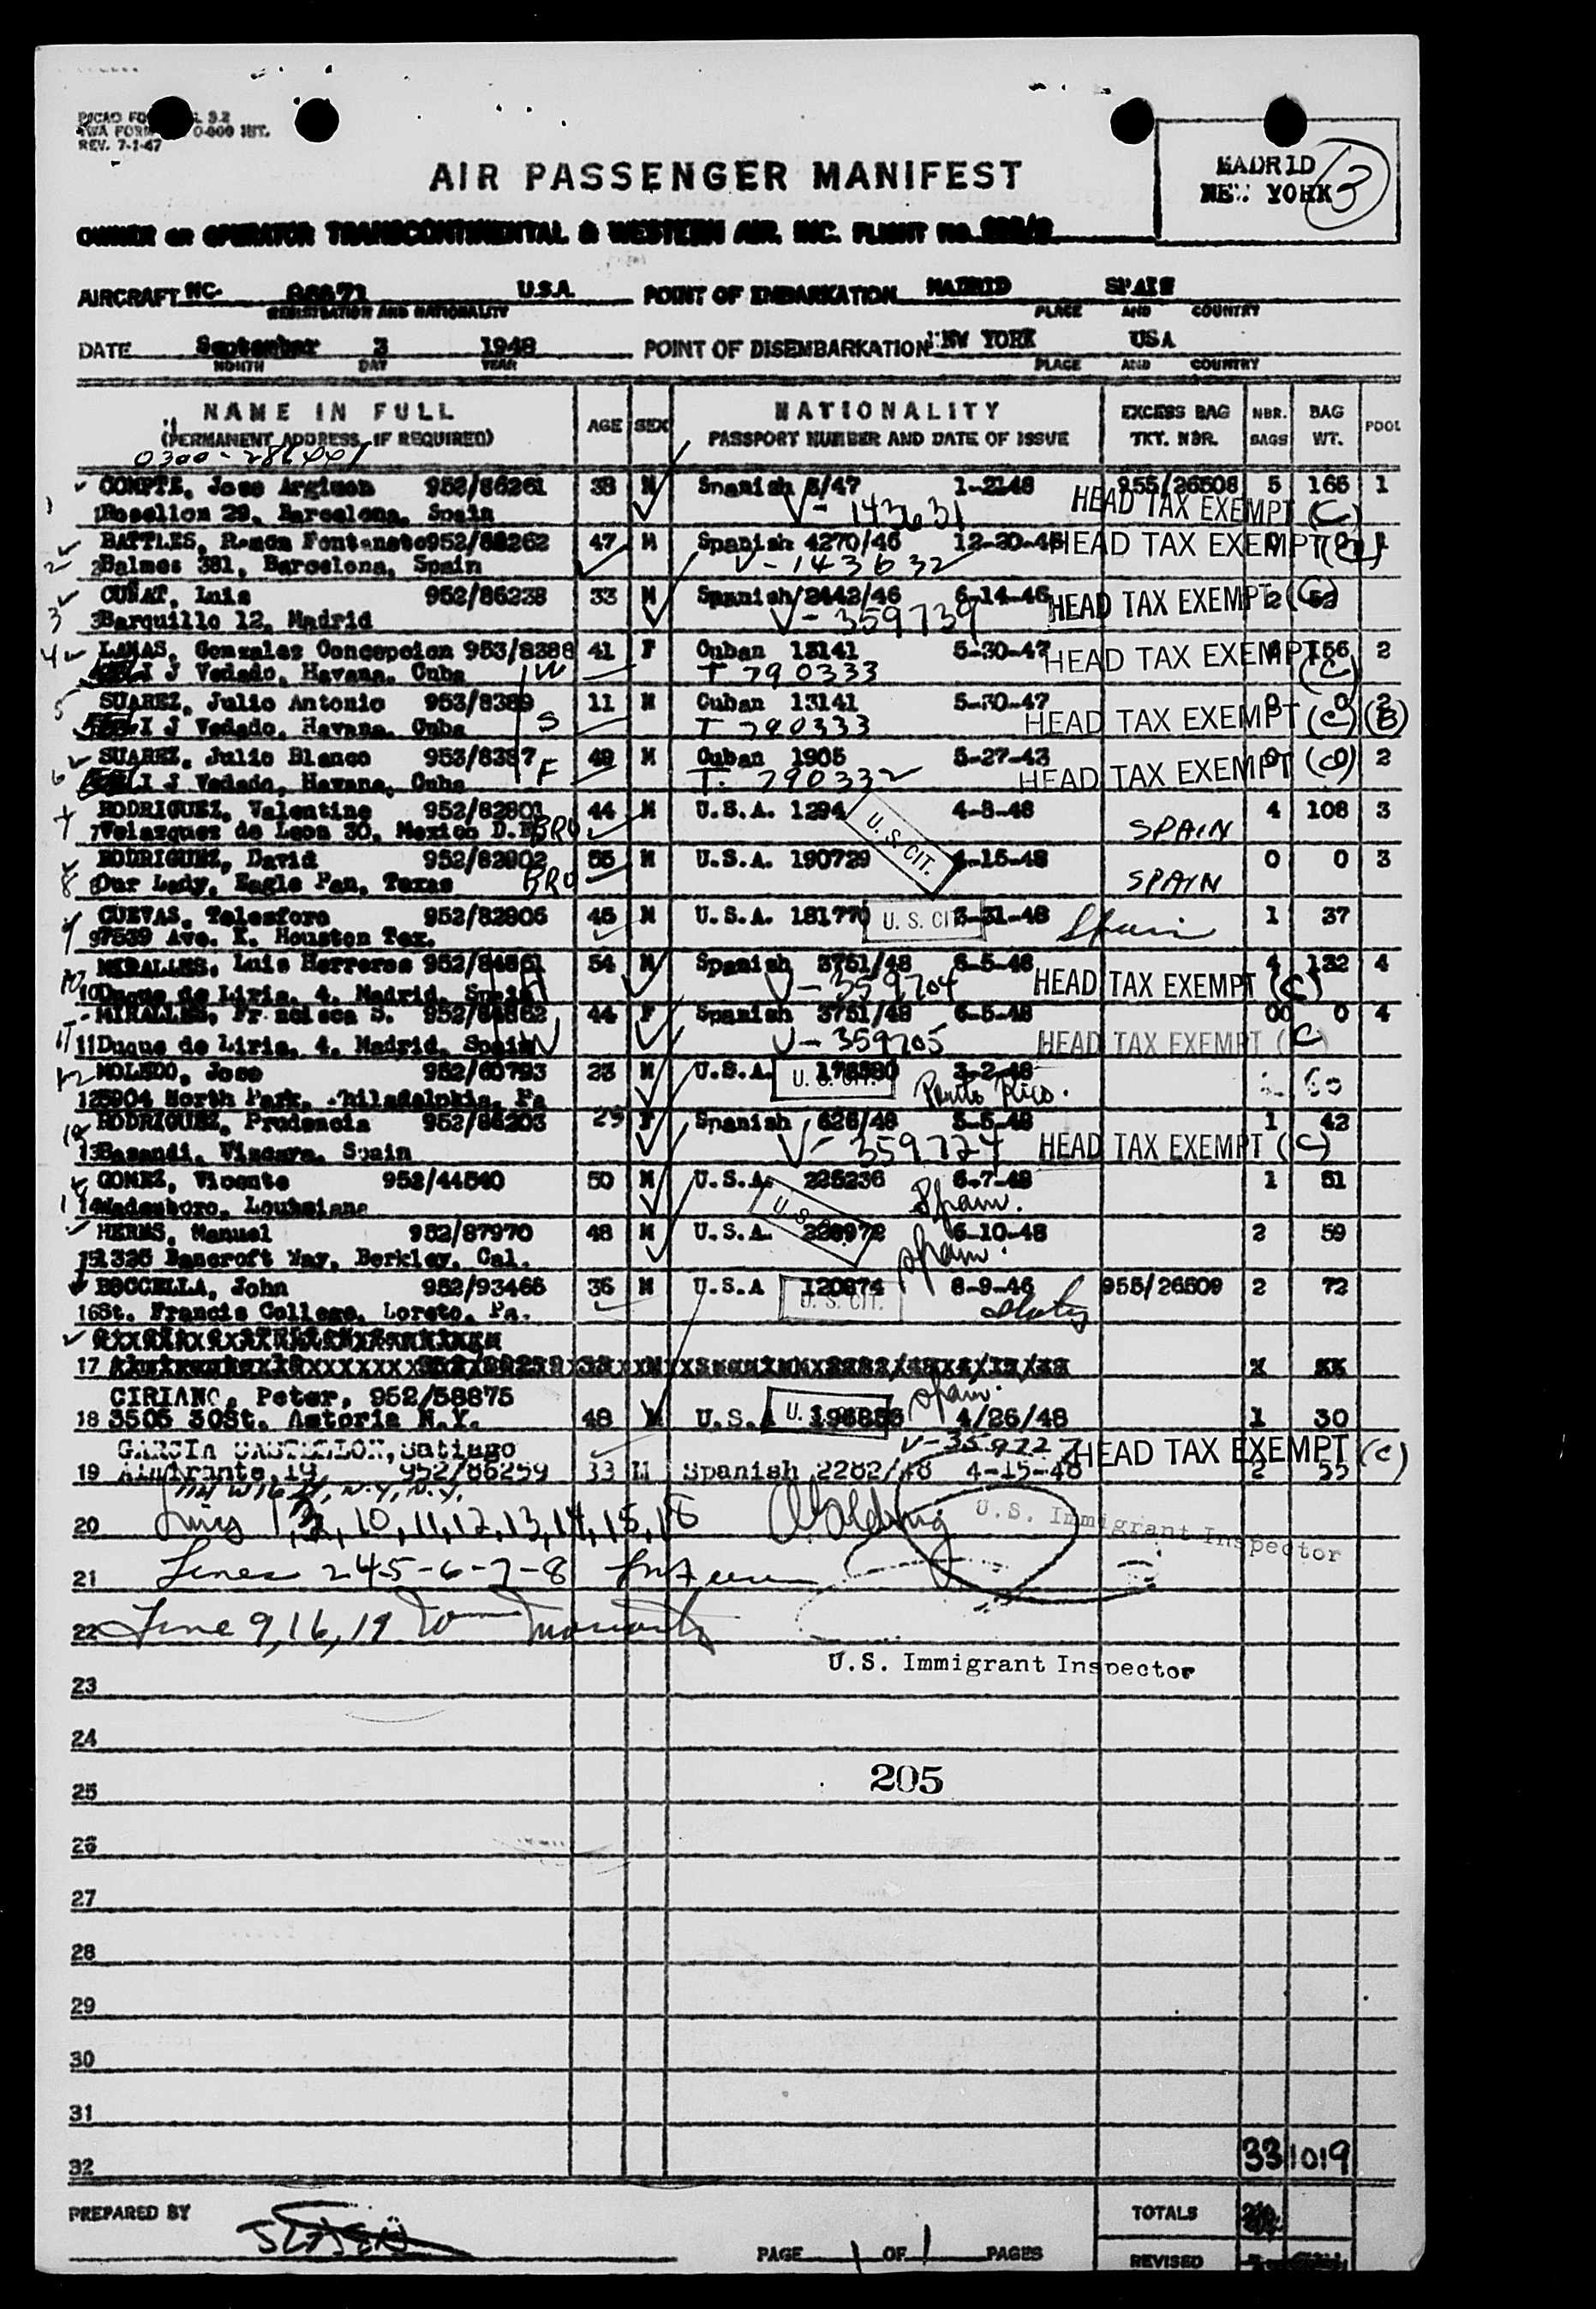 REV. 7-1-47
AIR PASSENGER MANIFEST
MADRID
NEW YORK
3
OWNER OR OPERATOR TRANSCONTINENTAL & WESTERN AIR, INC. FLIGHT NO.
AIRCRAFT NC. U.S.A. POINT OF EMBARKATION MADRID SPAIN
REGISTRATION AND NATIONALITY PLACE AND COUNTRY
DATE September 3 1948 POINT OF DISEMBARKATION NEW YORK USA
MONTH DAY YEAR PLACE AND COUNTRY
NAME IN FULL AGE SEX NATIONALITY EXCESS BAG NBR. BAG POOL
(PERMANENT ADDRESS, IF REQUIRED) PASSPORT NUMBER AND DATE OF ISSUE TKT. NBR. BAGS WT.
COMPTE, Jose Argimon 952/86261 38 M Spanish 5/47 1-2148 955/26508 5 166 1
1 Rosellon 29, Barcelona, Spain V-143631 HEAD TAX EXEMPT (C)
BATTLES, Ramon 952/86262 47 M Spanish 4270/46 12-30-46 HEAD TAX EXEMPT 1
2 Balmes 381, Barcelona, Spain V-143632
CUÑAT, Luis 952/86238 33 M Spanish/2442/46 6-14-46 HEAD TAX EXEMPT 2
3 Barquillo 12, Madrid V-359739
LAMAS, Gonzalez Concepcion 953/8388 41 F Cuban 13141 5-30-47 HEAD TAX EXEMPT 156 2
I J Vedado, Havana, Cuba W T 790333 (C)
SUAREZ, Julio Antonio 953/8389 11 M Cuban 13141 5-30-47 0 0 2
I J Vedado, Havana, Cuba S T 790333 HEAD TAX EXEMPT (C) (B)
SUAREZ, Julio Blanco 953/8387 49 M Cuban 1905 5-27-43 0 2
I J Vedado, Havana, Cuba F T. 790332 HEAD TAX EXEMPT
RODRIGUEZ, Valentine 952/82801 44 M U.S.A. 1294 4-8-48 4 108 3
7 Velazquez de Leon 30, Mexico D.F. BRO U.S. CIT. SPAIN
RODRIGUEZ, David 952/82902 55 M U.S.A. 190729 4-15-48 0 0 3
8 Our Lady, Eagle Pan, Texas BRO SPAIN
CUEVAS, Telesforo 952/82906 45 M U.S.A. 181770 U. S. CIT 3-31-48 Spain 1 37
9 7539 Ave. K. Houston Tex.
MIRALLES, Luis Herreros 952/84861 54 M Spanish 3751/48 6-5-48 4 132 4
10 Duque de Liria, 4, Madrid, Spain H V-359704 HEAD TAX EXEMPT (C)
MIRALLES, Francisca S. 952/84862 44 F Spanish 3751/48 6-5-48 00 0 4
11 Duque de Liria, 4, Madrid, Spain W V-359705 HEAD TAX EXEMPT (C)
MOLEDO, Jose 952/60793 23 M U.S.A. 3-2-48
12 5904 North Park, Philadelphia, Pa U. S. CIT. Puerto Rico.
RODRIGUEZ, Prudencia 952/86203 29 F Spanish 626/48 5-5-48 1 42
13 Basandi, Viscaya, Spain V-359724 HEAD TAX EXEMPT (C)
GOMEZ, Vicente 952/44540 50 M U.S.A. 225236 6-7-48 1 51
14 Wadesboro, Louisiana Spain.
HERMS, Manuel 952/87970 48 M U.S.A. 6-10-48 2 59
15 Bancroft Way, Berkley, Cal. Spain.
BOCCELLA, John 952/93466 36 M U.S.A 120874 8-9-46 955/26509 2 72
16 St. Francis College, Loreto, Pa. U.S. CIT. Italy
17
CIRIANO, Peter, 952/58875 Spain.
18 3505 30St. Astoria N.Y. 48 M U.S.A 4/26/48 1 30
GARCIA CASTELLON, Satiago V-359727 HEAD TAX EXEMPT (C)
19 Almirante, 19, 952/86259 33 M Spanish 2282/48 4-15-48 2 55
20 Lines 1, 3, 10, 11, 12, 13, 14, 15, 18 U.S. Immigrant Inspector
21 Lines 2 4-5-6-7-8
22 Line 9, 16, 19
U.S. Immigrant Inspector
23
24
205
25
26
27
28
29
30
31
32 33 1019
PREPARED BY TOTALS
PAGE 1 OF 1 PAGES REVISED